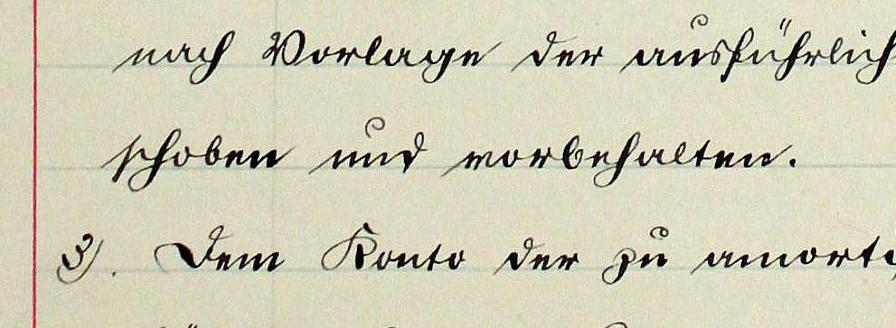 nach Vorlage der ausführlich
schoben und vorbehalten.
3). Dem Konto der zu amort